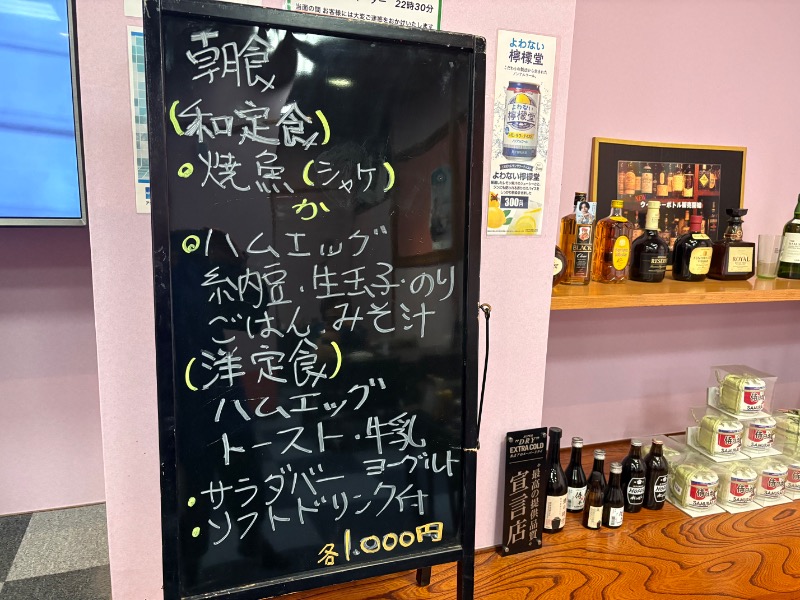 22時30分
当面の間 お客様には大変ご迷惑をおかけいたします
朝食
(和定食)
焼魚(シャケ)
か
ハムエッグ
納豆・生玉子・のり
ごはん.みそ汁
(洋定食)
ハムエッグ
トースト・牛乳
サラダバー ヨーグルト
ソフトドリンク付
各1.000円
よわない
檸檬堂
よわない
檸檬堂
よわない檸檬堂
300円
BLACK
RESERVE
ROYAL
"DRY"
EXTRA COLD
最高の提供品質。
宣言店
SAMURAI
SAMURAI
SAMURAI